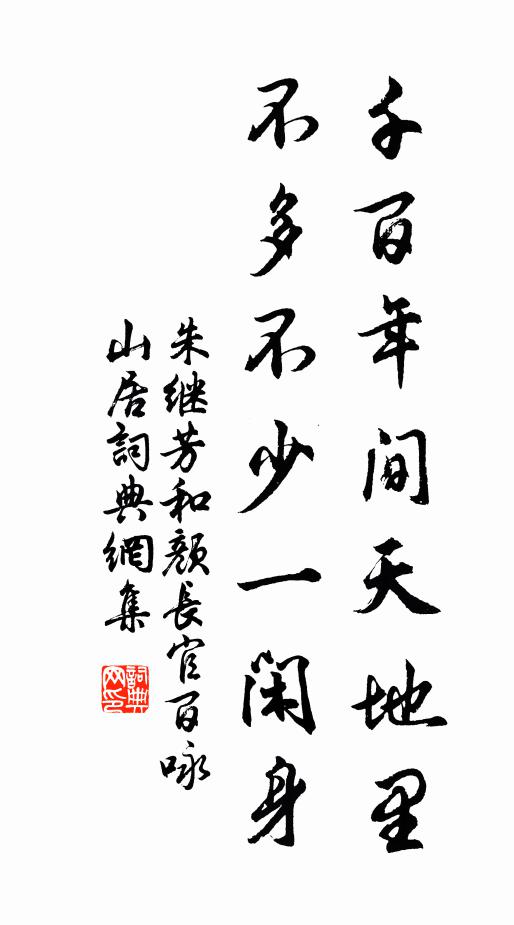 千百年间天地里
不多不少一闲身
朱继芳和颜長官百咏
山居詞典網集
詞典网印